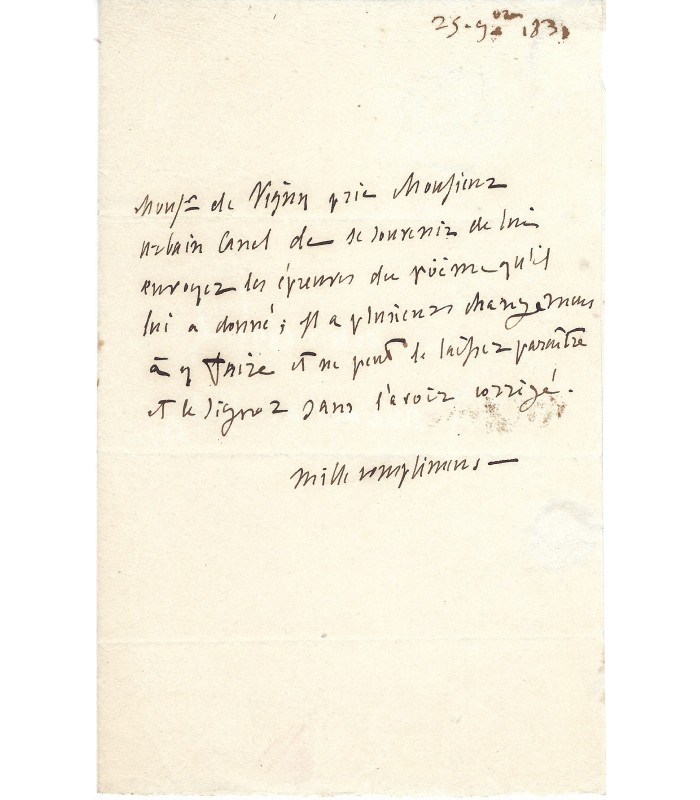 25 - 9bre 183
Monsr de Vigny prie Monsieur
urbain Canel de se souvenir de lui
envoyer les épreuves du poëme qu'il
lui a donné ; Il a plusieurs changemens
à y faire et ne peut le laisser paraître
et le signer sans l'avoir corrigé.
mille complimens —